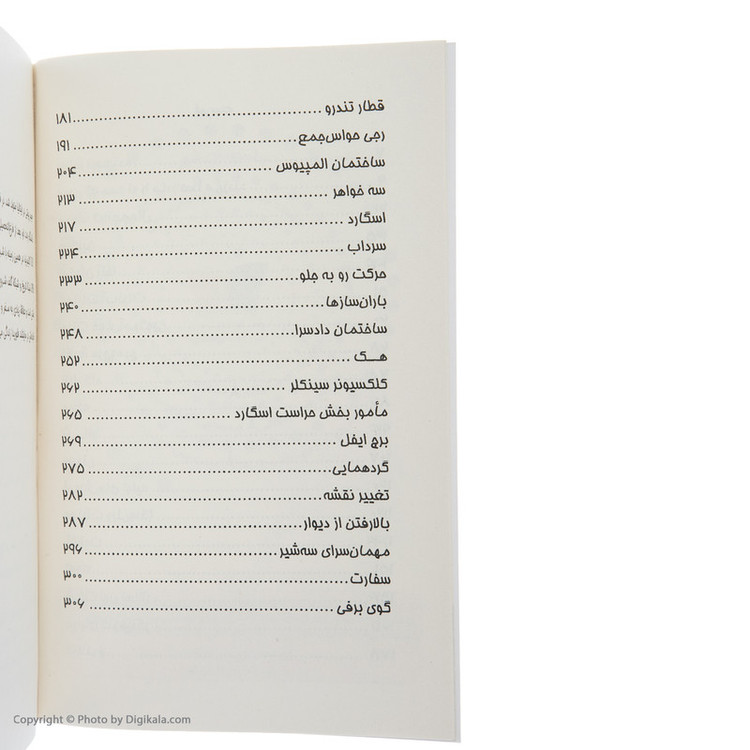 قطار تندرو ........................................ ۱۸۱
رجی حواس‌جمع ........................................ ۱۹۱
ساختمان المپیوس ........................................ ۲۰۴
سه خواهر ........................................ ۲۱۳
اسگارد ........................................ ۲۱۷
سرداب ........................................ ۲۲۴
حرکت رو به جلو ........................................ ۲۳۳
باران‌سازها ........................................ ۲۴۰
ساختمان دادسرا ........................................ ۲۴۸
هک ........................................ ۲۵۲
کلکسیونر سینکلر ........................................ ۲۶۲
مأمور بخش حراست اسگارد ........................................ ۲۶۵
برج ایفل ........................................ ۲۶۹
گردهمایی ........................................ ۲۷۵
تغییر نقشه ........................................ ۲۸۲
بالارفتن از دیوار ........................................ ۲۸۷
مهمان‌سرای سه‌شیر ........................................ ۲۹۶
سفارت ........................................ ۳۰۰
گوی برفی ........................................ ۳۰۶
Copyright © Photo by Digikala.com